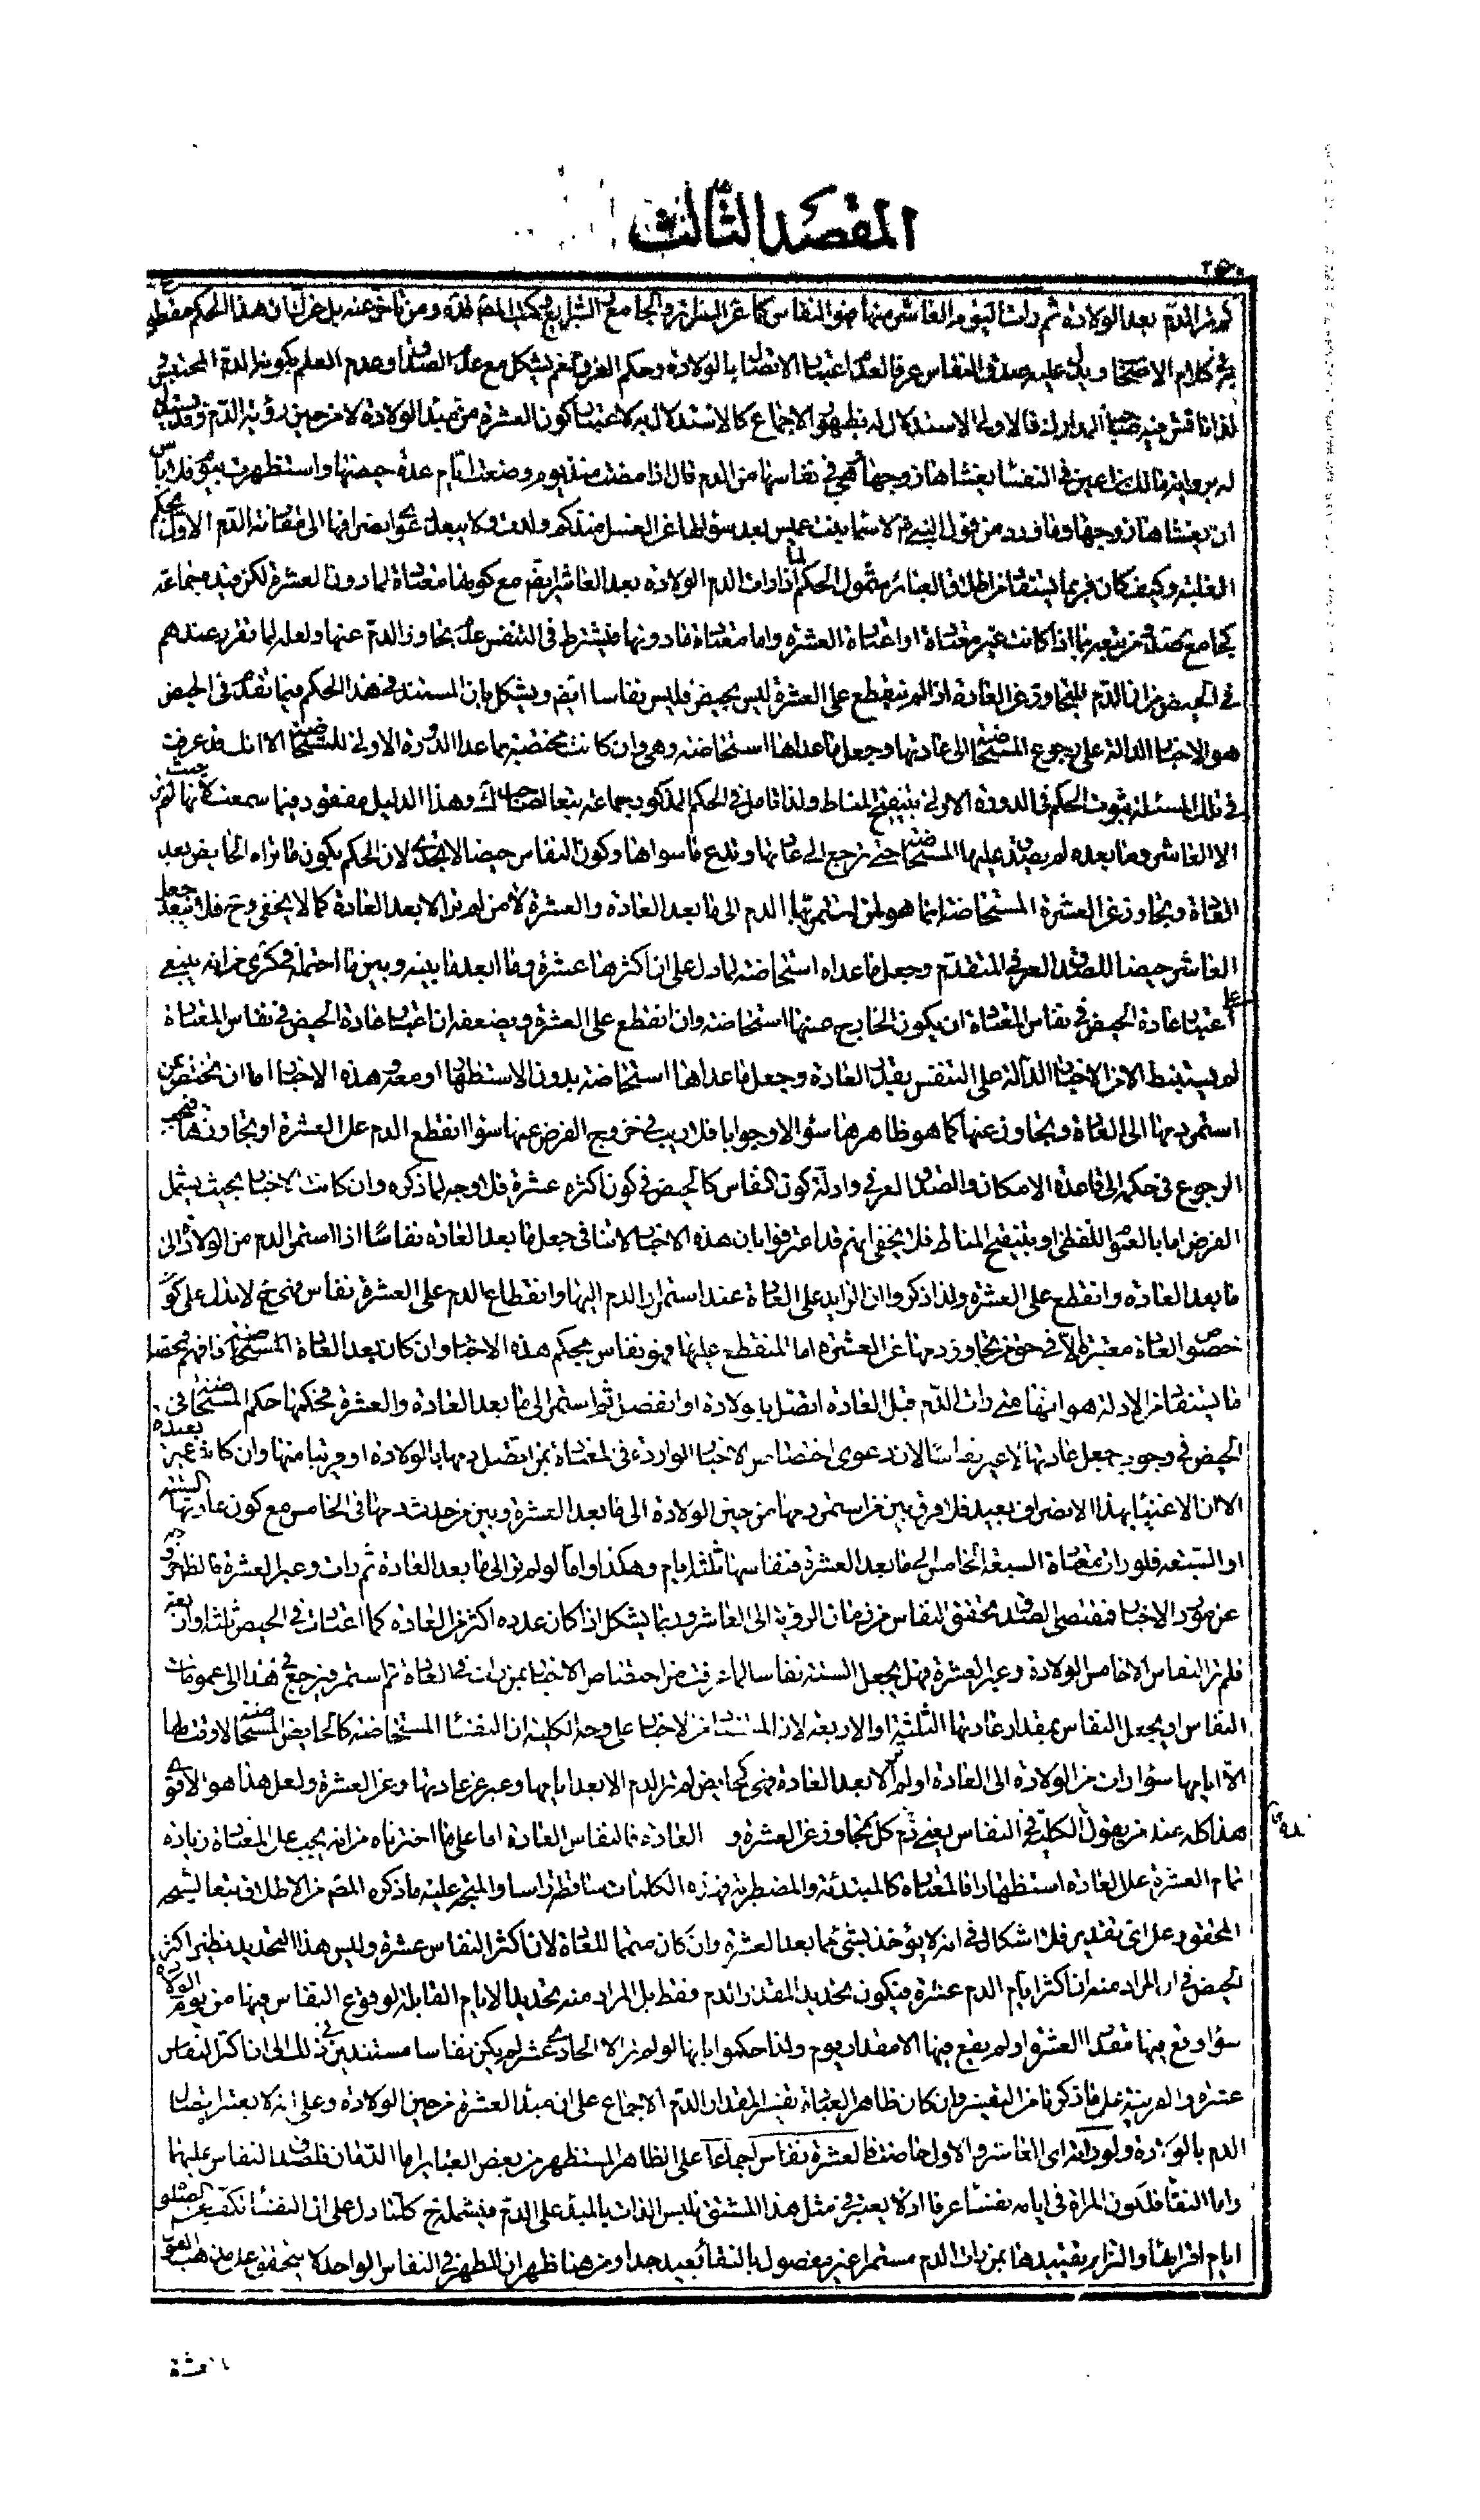 المقصد الثالث
٢٥٠
لم تر الدم بعد الولادة ثم رات اليوم العاشر منها فهو النفاس كما عن المبسوط والجامع والشرايع وكتب المصنف ومن تاخر عنه بل هذا الحكم مقطوع
به في كلام الاصحاب ويدل عليه صدق النفاس عرفا لعدم اعتبار الاتصال بالولادة وحكم العرف نعم يشكل مع عدم الصدق او عدم العلم بكونه الدم المحتبس
لذا ناقش فيه صاحب المدارك فالاولى الاستدلال له بظهور الاجماع كالاستدلال به لاعتبار كون العشرة من مبدء الولادة لا من حين رؤية الدم وقد يستدل
له برواية مالك بن اعين في النفساء يغشاها زوجها وهي في نفاسها من الدم قال اذا مضت منذ يوم وضعت ايام عدة حيضها واستظهرت بيوم فلا باس
ان يغشاها زوجها وما ورد من قول النبي ص لاسماء بنت عميس بعد سؤالها عن الغسل منذ كم ولدت ولا يبعد دعوى انصرافها الى مقارنة الدم الاول بحكم
الغلبة وكيف كان فربما يستفاد من اطلاق العبائر شمول الحكم لما اذا رات الدم الولادة بعد العاشر ايضا مع كونها معتادة لما دون العشرة لكن قيده جماعة
كجامع صد ومن تبعه بما اذا كانت غير معتادة او معتادة العشرة واما معتادة ما دونها فيشترط في التنفس عدم تجاوز الدم عنها ولعله لما تقرر عندهم
في الحيض من ان الدم المتجاوز عن العادة اذا لم ينقطع على العشرة ليس بحيض فليس نفاسا ايضا ويشكل بان المستند في هذا الحكم فيما تقدم في الحيض
هو الاخبار الدالة على رجوع المستحاضة الى عادتها وجعل ما عداها استحاضة وهي وان كانت مختصة بما عدا الدورة الاولى للمستحاضة الا انك قد عرفت
في تلك المسئلة ثبوت الحكم في الدورة الاولى بتنقيح المناط ولذا تامل في الحكم المذكور جماعة تبعا لصاحب لك وهذا الدليل مفقود فيما سمعت لانها حيث لم تر
الا العاشر وما بعده لم يصدق عليها المستحاضة حتى ترجع الى عادتها وتدع ما سواها وكون النفاس حيضا لا يجدي لان الحكم بكون ما تراه الحايض بعد
العادة وتجاوز عن العشرة المستحاضة انما هو لمن استمر بها الدم الى ما بعد العادة والعشرة لا من لم تر الا بعد العادة كما لا يخفى وح فلا يبعد جعل
العاشر حيضا للصدق العرفي المتقدم وجعل ما عداه استحاضة لما دل على ان اكثرها عشرة وما ابعد ما بينه وبين ما احتمله في كرى من انه ينبغي
على اعتبار عادة الحيض في نفاس المعتادة ان يكون الخارج عنها استحاضة وان انقطع على العشرة ويضعفه ان اعتبار عادة الحيض في نفاس المعتادة
لم يستنبط الا من الاخبار الدالة على التنفس بقدر العادة وجعل ما عداها استحاضة بدون الاستظهار او معه وهذه الاخبار اما ان يختص بمن
استمر دمها الى العادة وتجاوز عنها كما هو ظاهرها سؤالا وجوابا فلا ريب في خروج الفرض عنها سواء انقطع الدم على العشرة او تجاوزها فيجب
الرجوع في حكمه الى قاعدة الامكان والصدق العرفي وادلة كون النفاس كالحيض في كون اكثره عشرة فلا وجه لما ذكره وان كانت الاخبار بحيث يشمل
الفرض اما بالعموم اللفظي او بتنقيح المناط فلا يخفى انهم قد اعترفوا بان هذه الاخبار لا تنافي جعل ما بعد العادة نفاسا اذا استمر الدم من الولادة الى
ما بعد العادة وانقطع على العشرة ولذا ذكروا ان الزايد على العادة عند استمرار الدم اليها وانقطاع الدم على العشرة نفاس فهي ح لا تدل على كون
خصوص العادة معتبرة الا في حق من تجاوز دمها عن العشرة اما المنقطع عليها فهو نفاس بحكم هذه الاخبار وان كان بعد العادة المستحاضة فافهم فتحصل
ما يستفاد من الادلة هو انها متى رات الدم قبل العادة اتصل بالولادة او انفصل ثم استمر الى ما بعد العادة والعشرة فحكمها حكم المستحاضة في
الحيض في وجوب جعل عادتها لا غير نفاسا الا ان دعوى اختصاص الاخبار الواردة في المعتادة بمن اتصل دمها بالولادة او قريبا منها وان كانت غير بعيدة
الا ان الاعتناء بهذا الانصراف بعيد فلا فرق بين من استمر دمها من حين الولادة الى ما بعد العشرة وبين من حدث دمها في الخامس مع كون عادتها الستة
او السبعة فلو رات معتادة السبعة الخامس الى ما بعد العشرة فنفاسها ثلثة ايام وهكذا واما لو لم تر الى ما بعد العادة ثم رات وعبر العشرة فالظاهر خروجه
عن مورد الاخبار فمقتضى الصدق تحقق النفاس من زمان الرؤية الى العاشر وربما يشكل اذا كان عدده اكثر من العادة كما اعتادت في الحيض ثلثة او اربعة
فلم تر النفاس الا خامس الولادة وعبر العشرة فهل يجعل الستة نفاسا لما عرفت من اختصاص الاخبار بمن رات في العادة ثم استمر فيرجع في هذا الى عمومات
النفاس او يجعل النفاس بمقدار عادتها الثلثة او الاربعة لان المستفاد من الاخبار على وجه الكلية ان النفساء المستحاضة كالحايض المستحاضة لا وقت لها
الا ايامها سواء رات من الولادة الى العادة او لم تر الا بعد العادة فهي كحايض لم تر الدم الا بعد ايامها وعبر عن عادتها وعن العشرة ولعل هذا هو الاقوى
هذا كله عند من يقول الكلية في النفاس يعني دم كل تجاوز عن العشرة و العادة فالنفاس العادة اما على ما اخترناه من انه يجب على المعتادة زيادة
تمام العشرة على العادة استظهارا فالمعتادة كالمبتدئة والمضطربة فهذه الكلمات ساقطة راسا والمتجه عليه ما ذكره المصنف من الاطلاق تبعا لشيخه
المحقق وعلى اي تقدير فلا اشكال في انه لا يؤخذ بشئ مما بعد العشرة وان كان متمما للعادة لان اكثر النفاس عشرة وليس هذا التحديد نظير اكثر
الحيض في ان المراد منه ان اكثر ايام الدم عشرة فيكون تحديد المقدار الدم فقط بل المراد منه تحديد الايام القابلة لوقوع النفاس فيها من يوم الولادة
سواء وقع فيها مقدار العشرة او لم يقع فيها الا مقدار يوم ولذا حكموا بانها لو لم تر الا الحادي عشر لم يكن نفاسا مستندين في ذلك الى ان اكثر النفاس
عشرة والقرينة على ما ذكرنا من التفسير وان كان ظاهر العبارة تفسير المقدار الدم الاجماع على ان مبدء العشرة من حين الولادة وعلى انه لا يعتبر اتصال
الدم بالولادة ولو راته اي العاشر والاول خاصة فالعشرة نفاس اجماعا على الظاهر المستظهر من بعض العبائر اما الدمان فلصدق النفاس عليهما
واما النقاء فلكون المراة في ايامه نفساء عرفا اذ لا يعتبر في مثل هذا المشتق تلبس الذات بالمبدء على الدم فيشمله ح كلما دل على ان النفساء تكف عن الصلوة
ايام اقرائها والتزام تقييدها بمن رات الدم مستمرا غير مفصول بالنقاء بعيد جدا ومن هنا ظهر ان الطهر في النفاس الواحد لا يتحقق على مذهب المصنف
عشرة